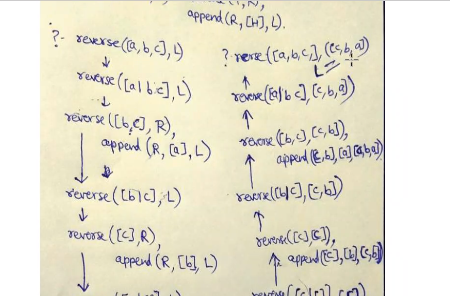 append (R, [H], L).
?- reverse([a,b,c], L)
reverse([a|b c], L)
reverse([b,c], R),
append (R, [a], L)
reverse([b|c], L)
reverse([c], R),
append (R, [b], L)
? reverse([a,b,c,], [c,b,a])
L
reverse([a|b c], [c,b,a])
reverse([b,c], [c,b]),
append([c,b], [a] [c,b,a])
reverse([b|c], [c,b])
reverse([c], [c]),
append([c], [b], [c,b])